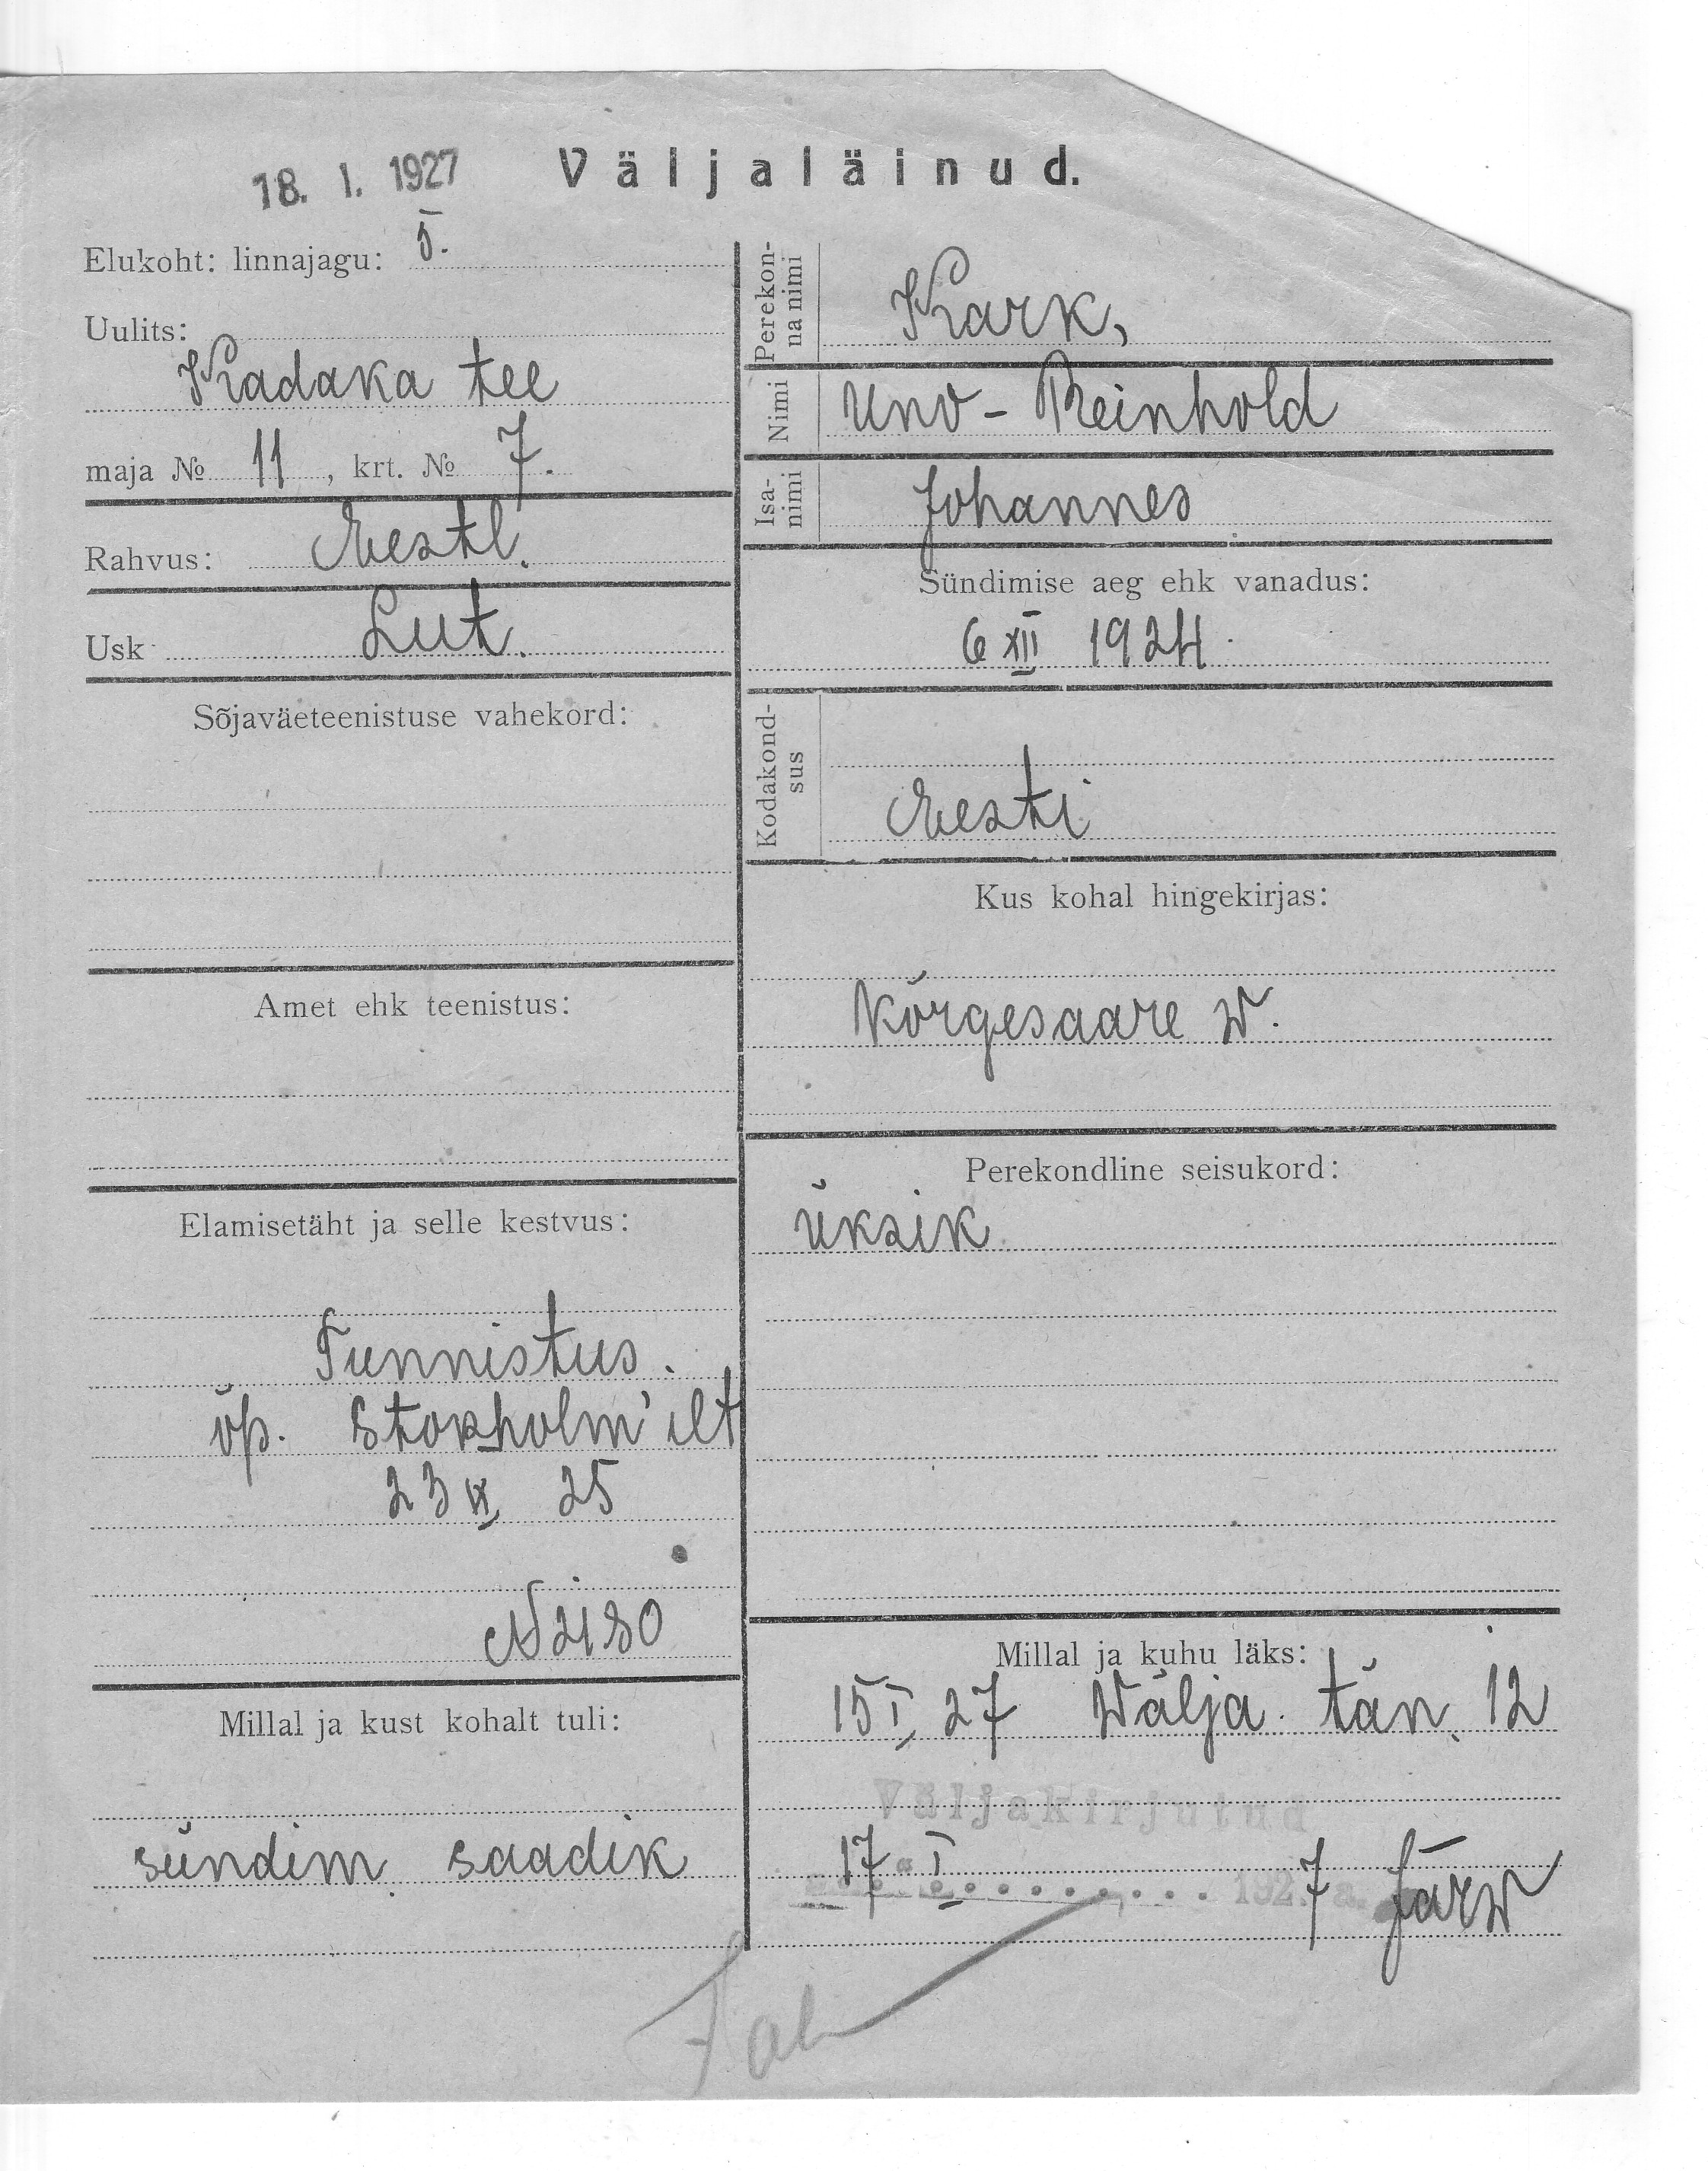 18. I. 1927 Väljaläinud.
Elukoht: linnajagu: 5.
Uulits:
Kadaka tee
maja № 11, krt. № 7.
Rahvus: Eestl.
Usk Lut.
Sõjaväeteenistuse vahekord:
Amet ehk teenistus:
Elamisetäht ja selle kestvus:
Tunnistus.
õp. Stokholm'ilt
23 IX 25
N 2180
Millal ja kust kohalt tuli:
sündim. saadik
Perekonna nimi Kark,
Nimi Uno-Reinhold
Isanimi Johannes
Sündimise aeg ehk vanadus:
6 XII 1924.
Kodakondsus
Eesti
Kus kohal hingekirjas:
Kõrgesaare w.
Perekondline seisukord:
üksik
Millal ja kuhu läks:
15 I 27 Wälja tän. 12
Väljakirjutud
17 I 1927 a. Järw